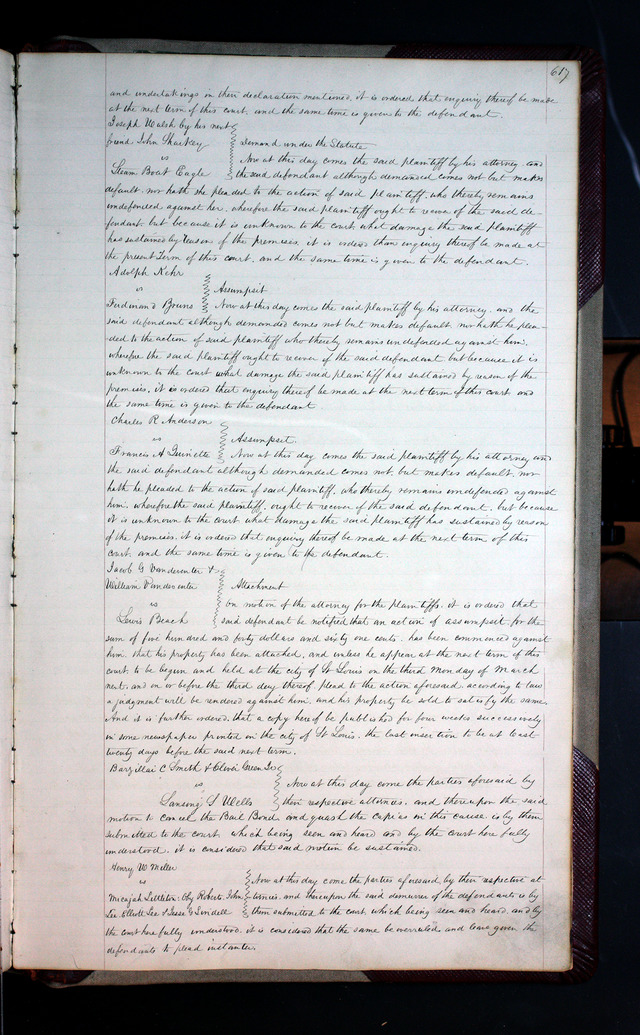 617
and undertakings in their declaration mentioned, it is ordered that enquiry thereof be made
at the next term of this court, and the same time is given to the defendant.
Joseph Walsh by his next
friend John Sharkey Demand under the Statute
vs Now at this day comes the said plaintiff by his attorney, and
Steam Boat Eagle the said defendant although demanded comes not but makes
default, nor hath she pleaded to the action of said plaintiff, who thereby remains
undefended against her, wherefore the said plaintiff ought to recover of the said de-
fendant but because it is unknown to the court what damage the said plaintiff
has sustained by reason of the premises, it is ordered than enquiry thereof be made at
the present Term of this court, and the same time is given to the defendant.
Adolph Kehr
vs Assumpsit
Ferdinand Bruns Now at this day comes the said plaintiff by his attorney, and the
said defendant although demanded comes not but makes default, nor hath he plea-
ded to the action of said plaintiff who thereby remains undefended against him,
wherefore the said plaintiff ought to recover of the said defendant but because it is
unknown to the court what damage the said plaintiff has sustained by reason of the
premises, it is ordered that enquiry thereof be made at the next term of this court and
the same time is given to the defendant
Charles R Anderson
vs Assumpsit.
Francis A Quinette Now at this day comes the said plaintiff by his attorney and
the said defendant although demanded comes not, but makes default, nor
hath he pleaded to the action of said plaintiff, who thereby remains undefended against
him, wherefore the said plaintiff, ought to recover of the said defendant, but because
it is unknown to the court what damage the said plaintiff has sustained by reason
of the premises, it is ordered that enquiry thereof be made at the next term of this
court, and the same time is given to the defendant.
Jacob G Vandeventer &
William Vandeventer Attachment
vs On motion of the attorney for the plaintiffs, it is ordered that
Lewis Beach said defendant be notified that an action of assumpsit for the
sum of five hundred and forty dollars and sixty one cents, has been commenced against
him, that his property has been attached, and unless he appear at the next term of this
court, to be begun and held at the city of St Louis on the third Monday of March
next, and on or before the third day thereof, plead to the action aforesaid according to law
a judgment will be rendered against him, and his property be sold to satisfy the same.
And it is further ordered, that a copy hereof be published for four weeks successively
in some newspaper printed in the city of St Louis, the last insertion to be at least
twenty days before the said next term.
Barzillai C Smith & Oliver Green Jr
vs Now at this day come the parties aforesaid by
Lansing S Wells their respective attornies, and thereupon the said
motion to cancel the Bail Bond and quash the capias in this cause is by them
submitted to the court, which being seen and heard and by the court here fully
understood, it is considered that said motion be sustained.
Henry W Miller
vs Now at this day come the parties aforesaid by their respective at
Micajah Littleton, Roberts, John tornies, and thereupon the said demurrer of the defendants is by
Lee, Elliott Lee & Jesse G Lindell them submitted to the court, which being seen and heard, and by
the court here fully understood, it is considered that the same be overruled, and leave given the
defendants to plead instanter.